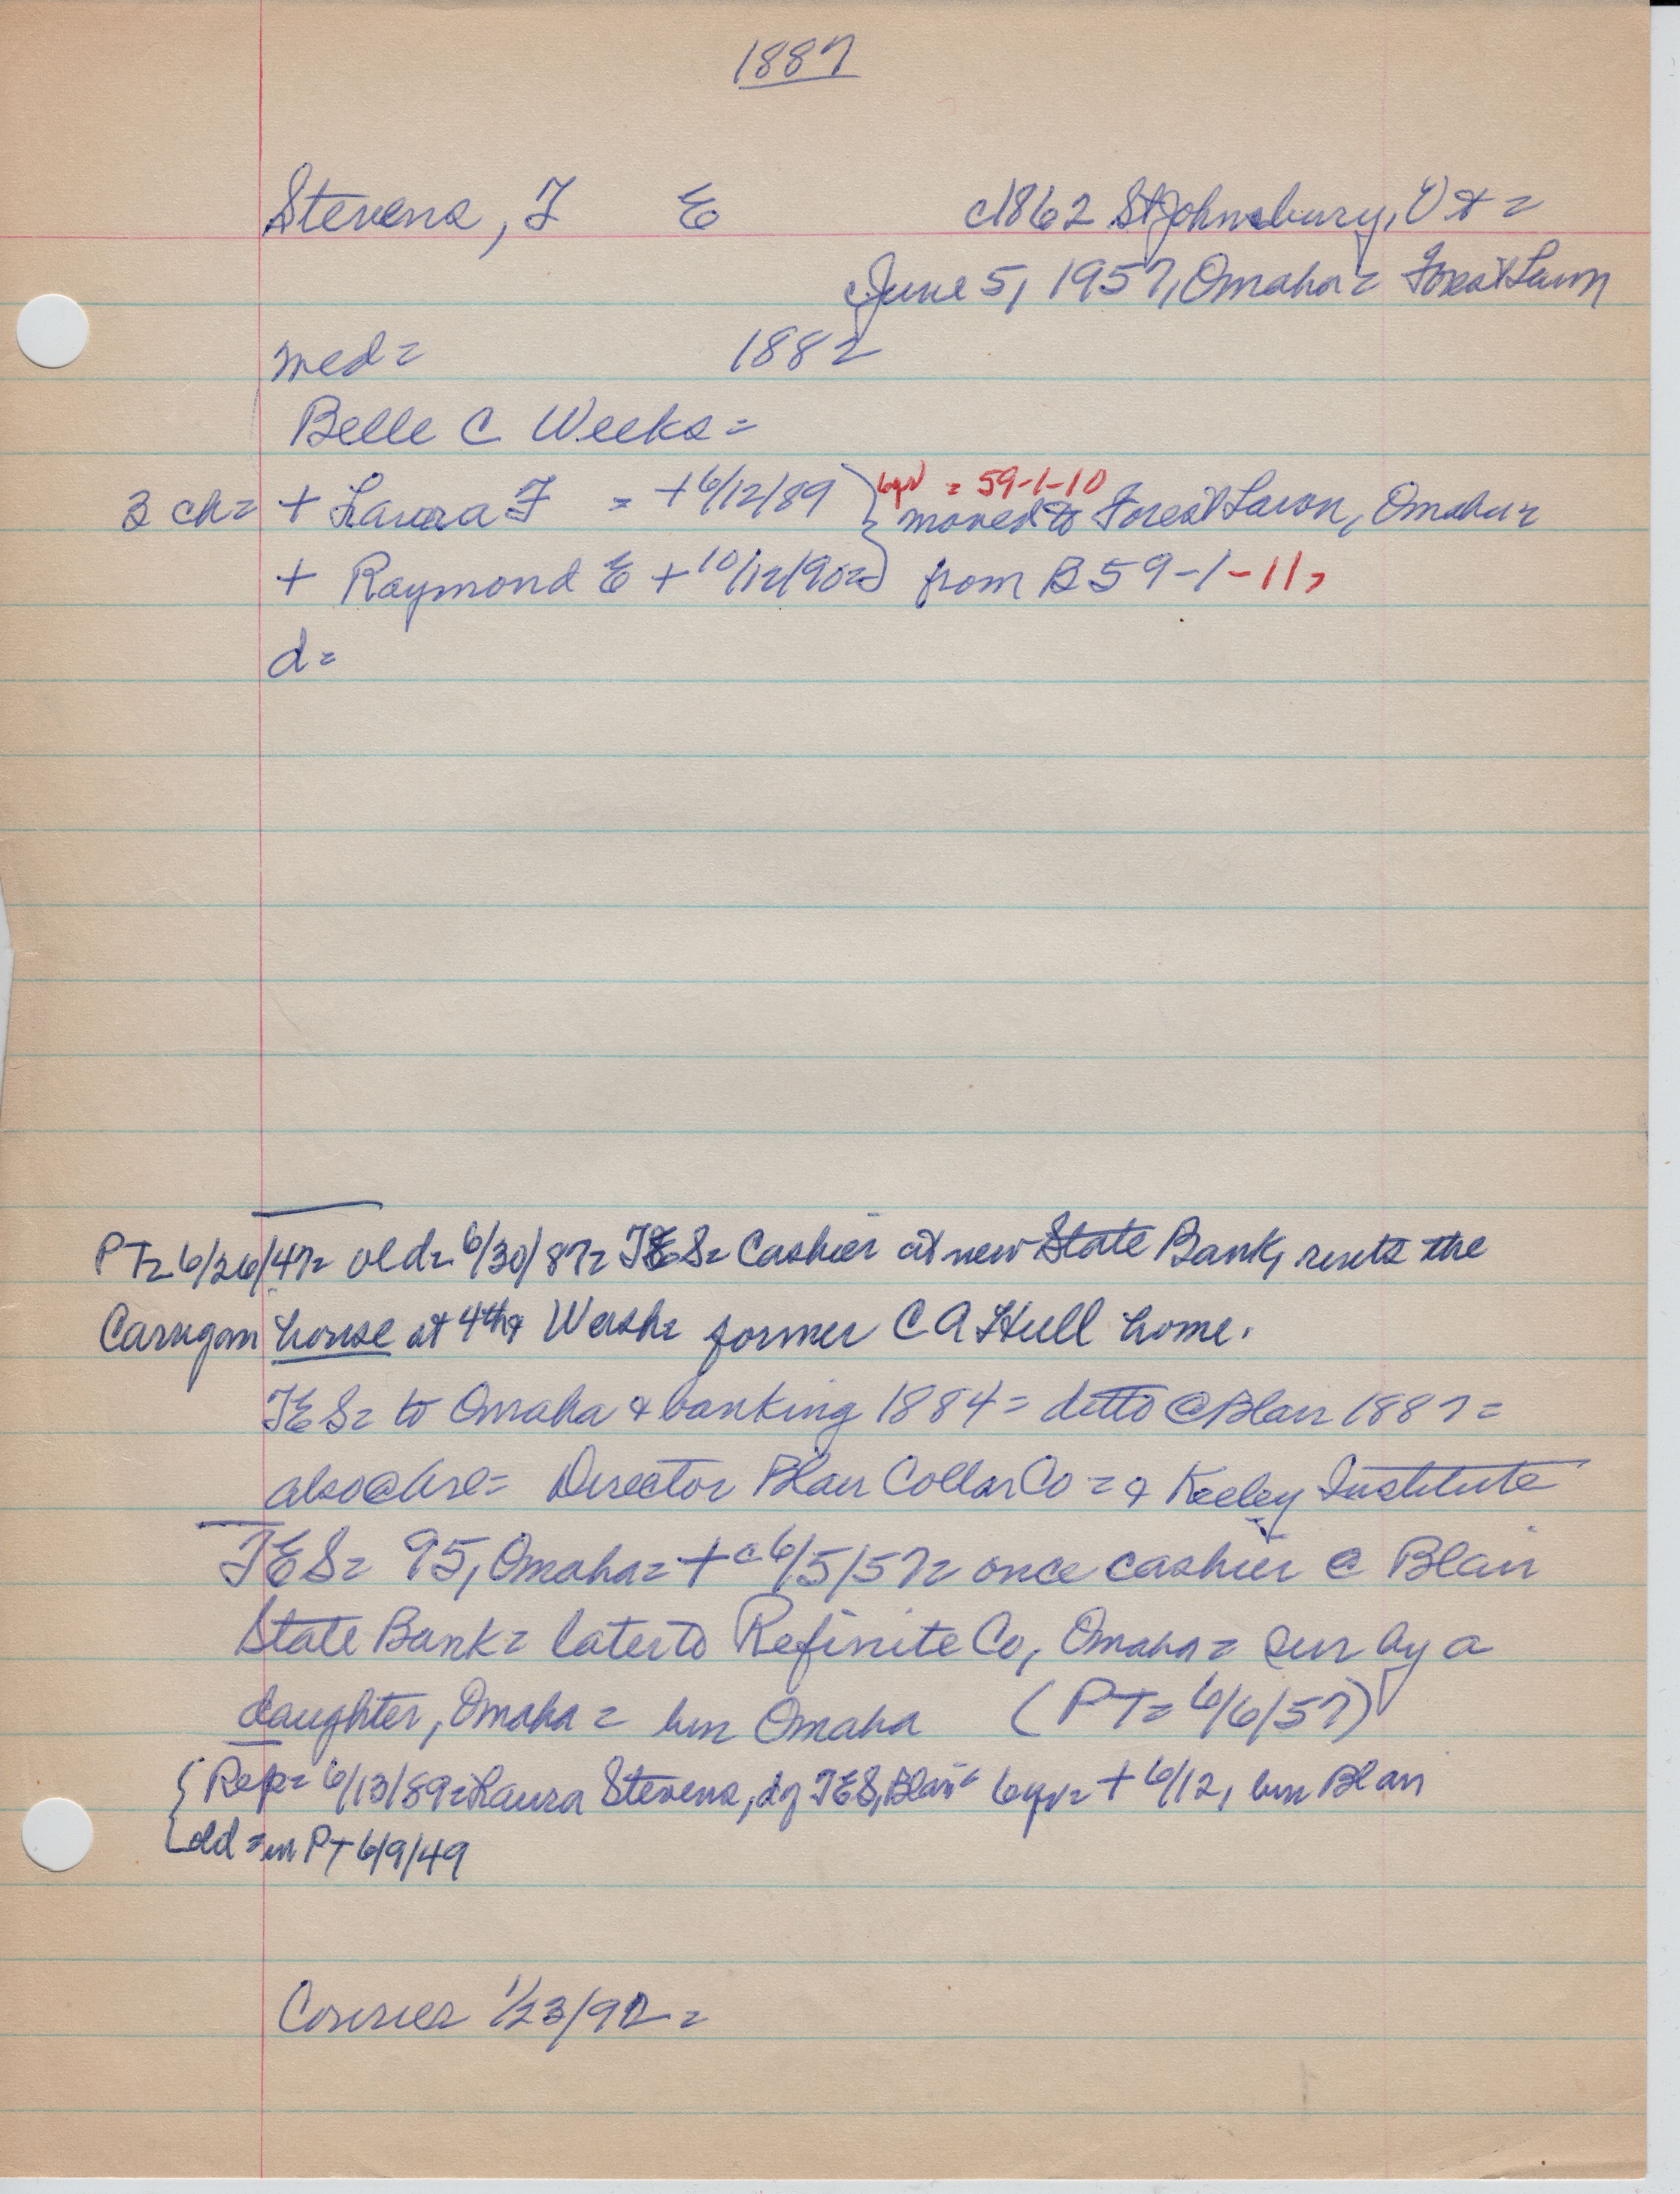 1887
Stevens, F E c1862 St Johnsbury, Vt =
June 5, 1957, Omaha = Forest Lawn
med = 1882
Belle C Weeks =
6yr = 59-1-10
3 ch = + Laura F = +6/12/89 } moved to Forest Lawn, Omaha =
+ Raymond E +10/12/90 = } from B 59-1-11,
d =
PT = 6/26/47 = old = 6/30/87 = FES = Cashier at new State Bank, rents the
Carrigan house at 4th & Wash = former C A Hull home.
FES = to Omaha & banking 1884 = ditto @ Blair 1887 =
also @ = Director Blair Collar Co = & Keeley Institute
FES = 95, Omaha = + c6/5/57 = once cashier @ Blair
State Bank = later to Refinite Co, Omaha = sur by a
daughter, Omaha = bur Omaha (PT = 6/6/57)
{ Rep = 6/13/89 = Laura Stevens, d of FES, Blair = 6yr = + 6/12, bur Blair
{ old = in PT 6/9/49
Courier 1/23/92 =